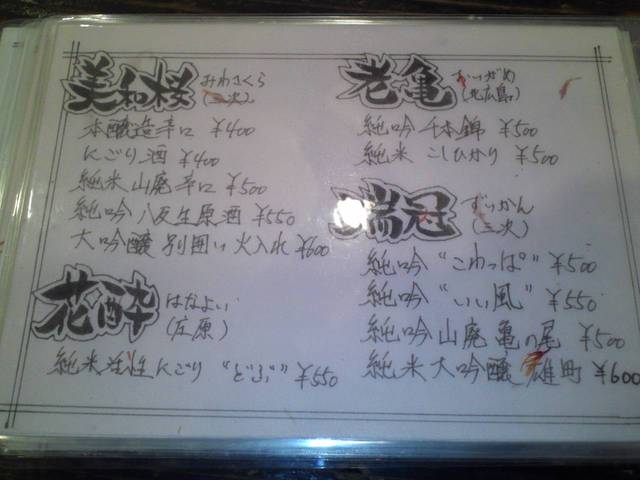 美和桜 みわさくら
(三次)
本醸造辛口 ¥400
にごり酒 ¥400
純米 山廃 辛口 ¥500
純吟 八反生原酒 ¥550
大吟醸 別囲い 火入れ ¥600
花酔 はなよい
(庄原)
純米活性にごり "どぶ" ¥550
老亀 ずいがめ
(北広島)
純吟 千本錦 ¥500
純米 こしひかり ¥500
瑞冠 ずいかん
(三次)
純吟 "こわっぱ" ¥500
純吟 "いい風" ¥550
純吟 山廃 亀の尾 ¥500
純米 大吟醸 雄町 ¥600